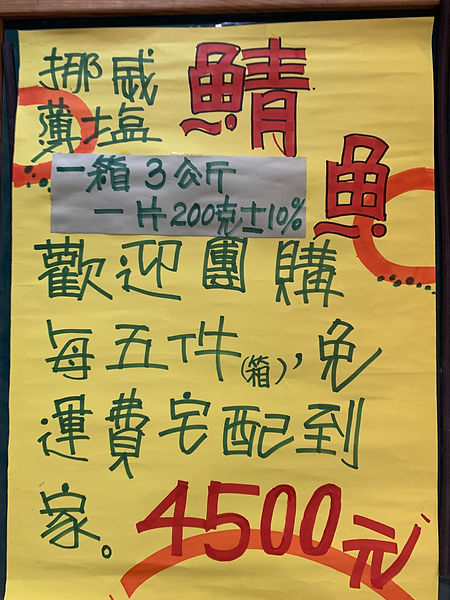 挪威
薄塩 鯖魚
一箱3公斤
一片200克±10%
歡迎團購
每五件(箱),免
運費宅配到
家。4500元